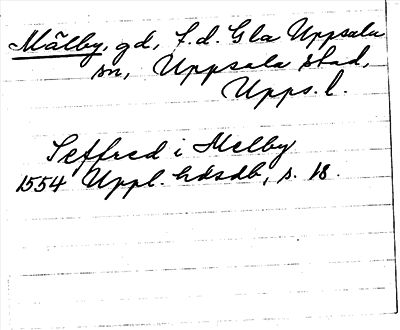 Mälby, gd, f.d. Gla Uppsala
sn, Uppsala stad,
Upps. l.
Seffred i Melby
1554 Uppl. hdsdb, s. 18.